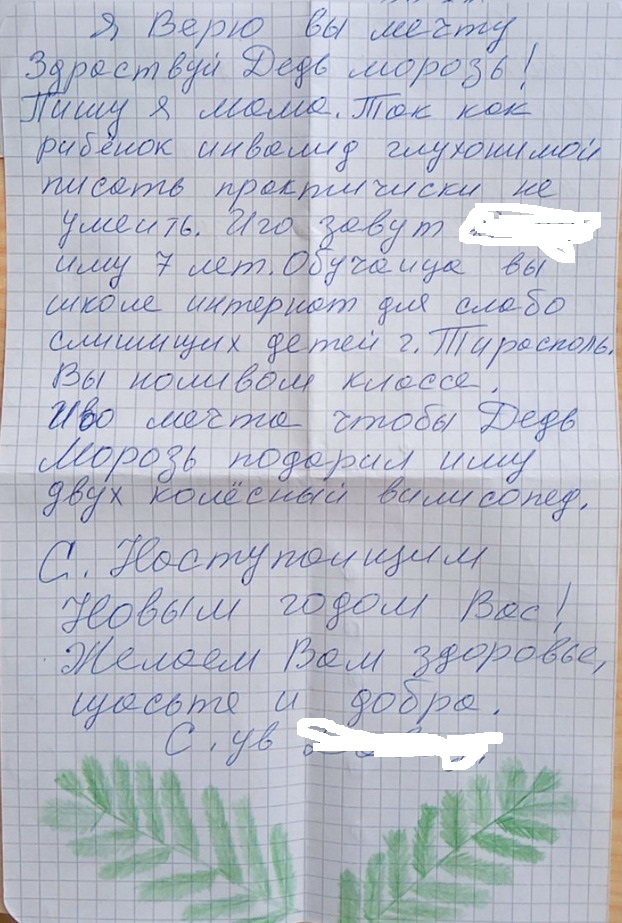 Я Верю вы мечту
Здраствуй Дедь морозь!
Пишу я мама. Так как
рибёнок инвалид глухонимой
писать практически не
умеить. Иго завут
иму 7 лет. Обучаица вы
школе интернат для слабо
слишищих детей г. Тирасполь.
Вы наливом классе.
Иво мечта чтобы Дедь
Морозь подарил иму
двух колёсный вилисопед.
С. Наступаищим
Новым годом Вас!
Желаем Вам здоровье,
щасьте и добра.
С. ув